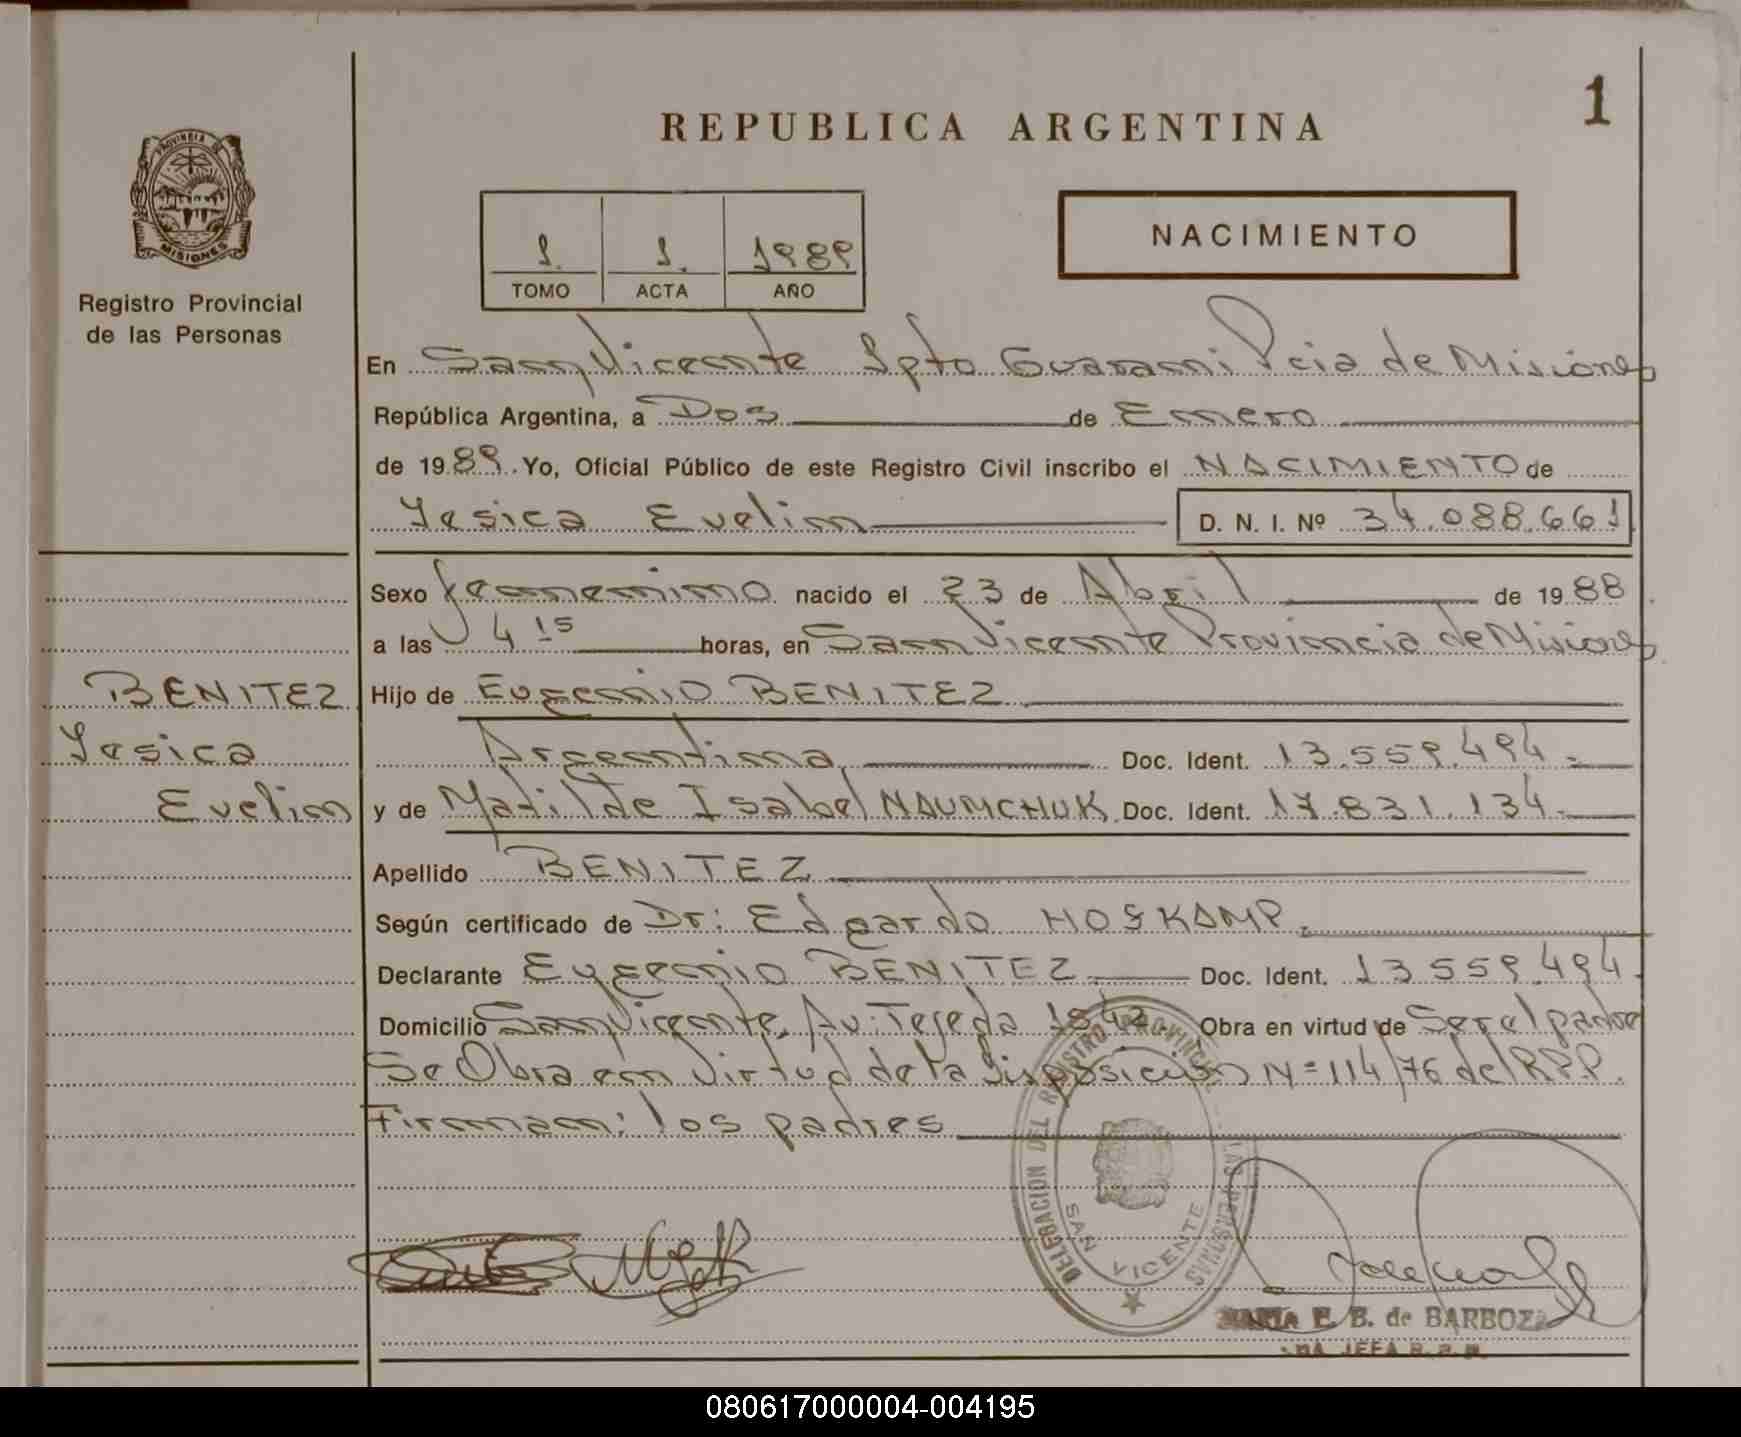 1
REPUBLICA ARGENTINA
PROVINCIA DE
MISIONES
Registro Provincial
de las Personas
1. 1. 1989
TOMO ACTA AÑO
NACIMIENTO
En San Vicente Dpto Guarani Pcia de Misiones
República Argentina, a Dos de Enero
de 1989. Yo, Oficial Público de este Registro Civil inscribo el NACIMIENTO de
Yesica Evelin D. N. I. Nº 34.088.661
Sexo femenino nacido el 23 de Abril de 1988
a las 4 15 horas, en San Vicente Provincia de Misiones
BENITEZ
Yesica
Evelin
Hijo de Eugenio BENITEZ
Argentina Doc. Ident. 13.559.494.-
y de Matilde Isabel NAUMCHUK Doc. Ident. 17.831.134.
Apellido BENITEZ
Según certificado de Dr: Edgardo HOSKAMP.
Declarante Eugenio BENITEZ Doc. Ident. 13559.494.
Domicilio San Vicente, Av: Tejeda Obra en virtud de Ser el padre
Se Obra en virtud de la Disposición Nº 114/76 del R.P.P.
Firman: los padres
DELEGACION DEL REGISTRO PROVINCIAL DE LAS PERSONAS
SAN VICENTE
MARIA E. B. de BARBOZA
JEFA R. P. P.
080617000004-004195